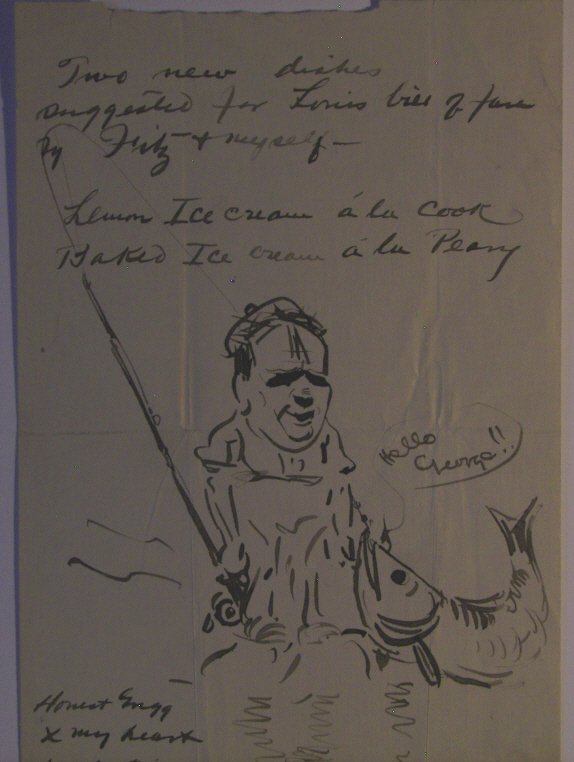 Two new dishes
suggested for Louis bill of fare
by Fitz & myself—
Lemon Ice cream á la Cook
Baked Ice cream á la Peary
Hello
George!!
Honest Engg
x my heart